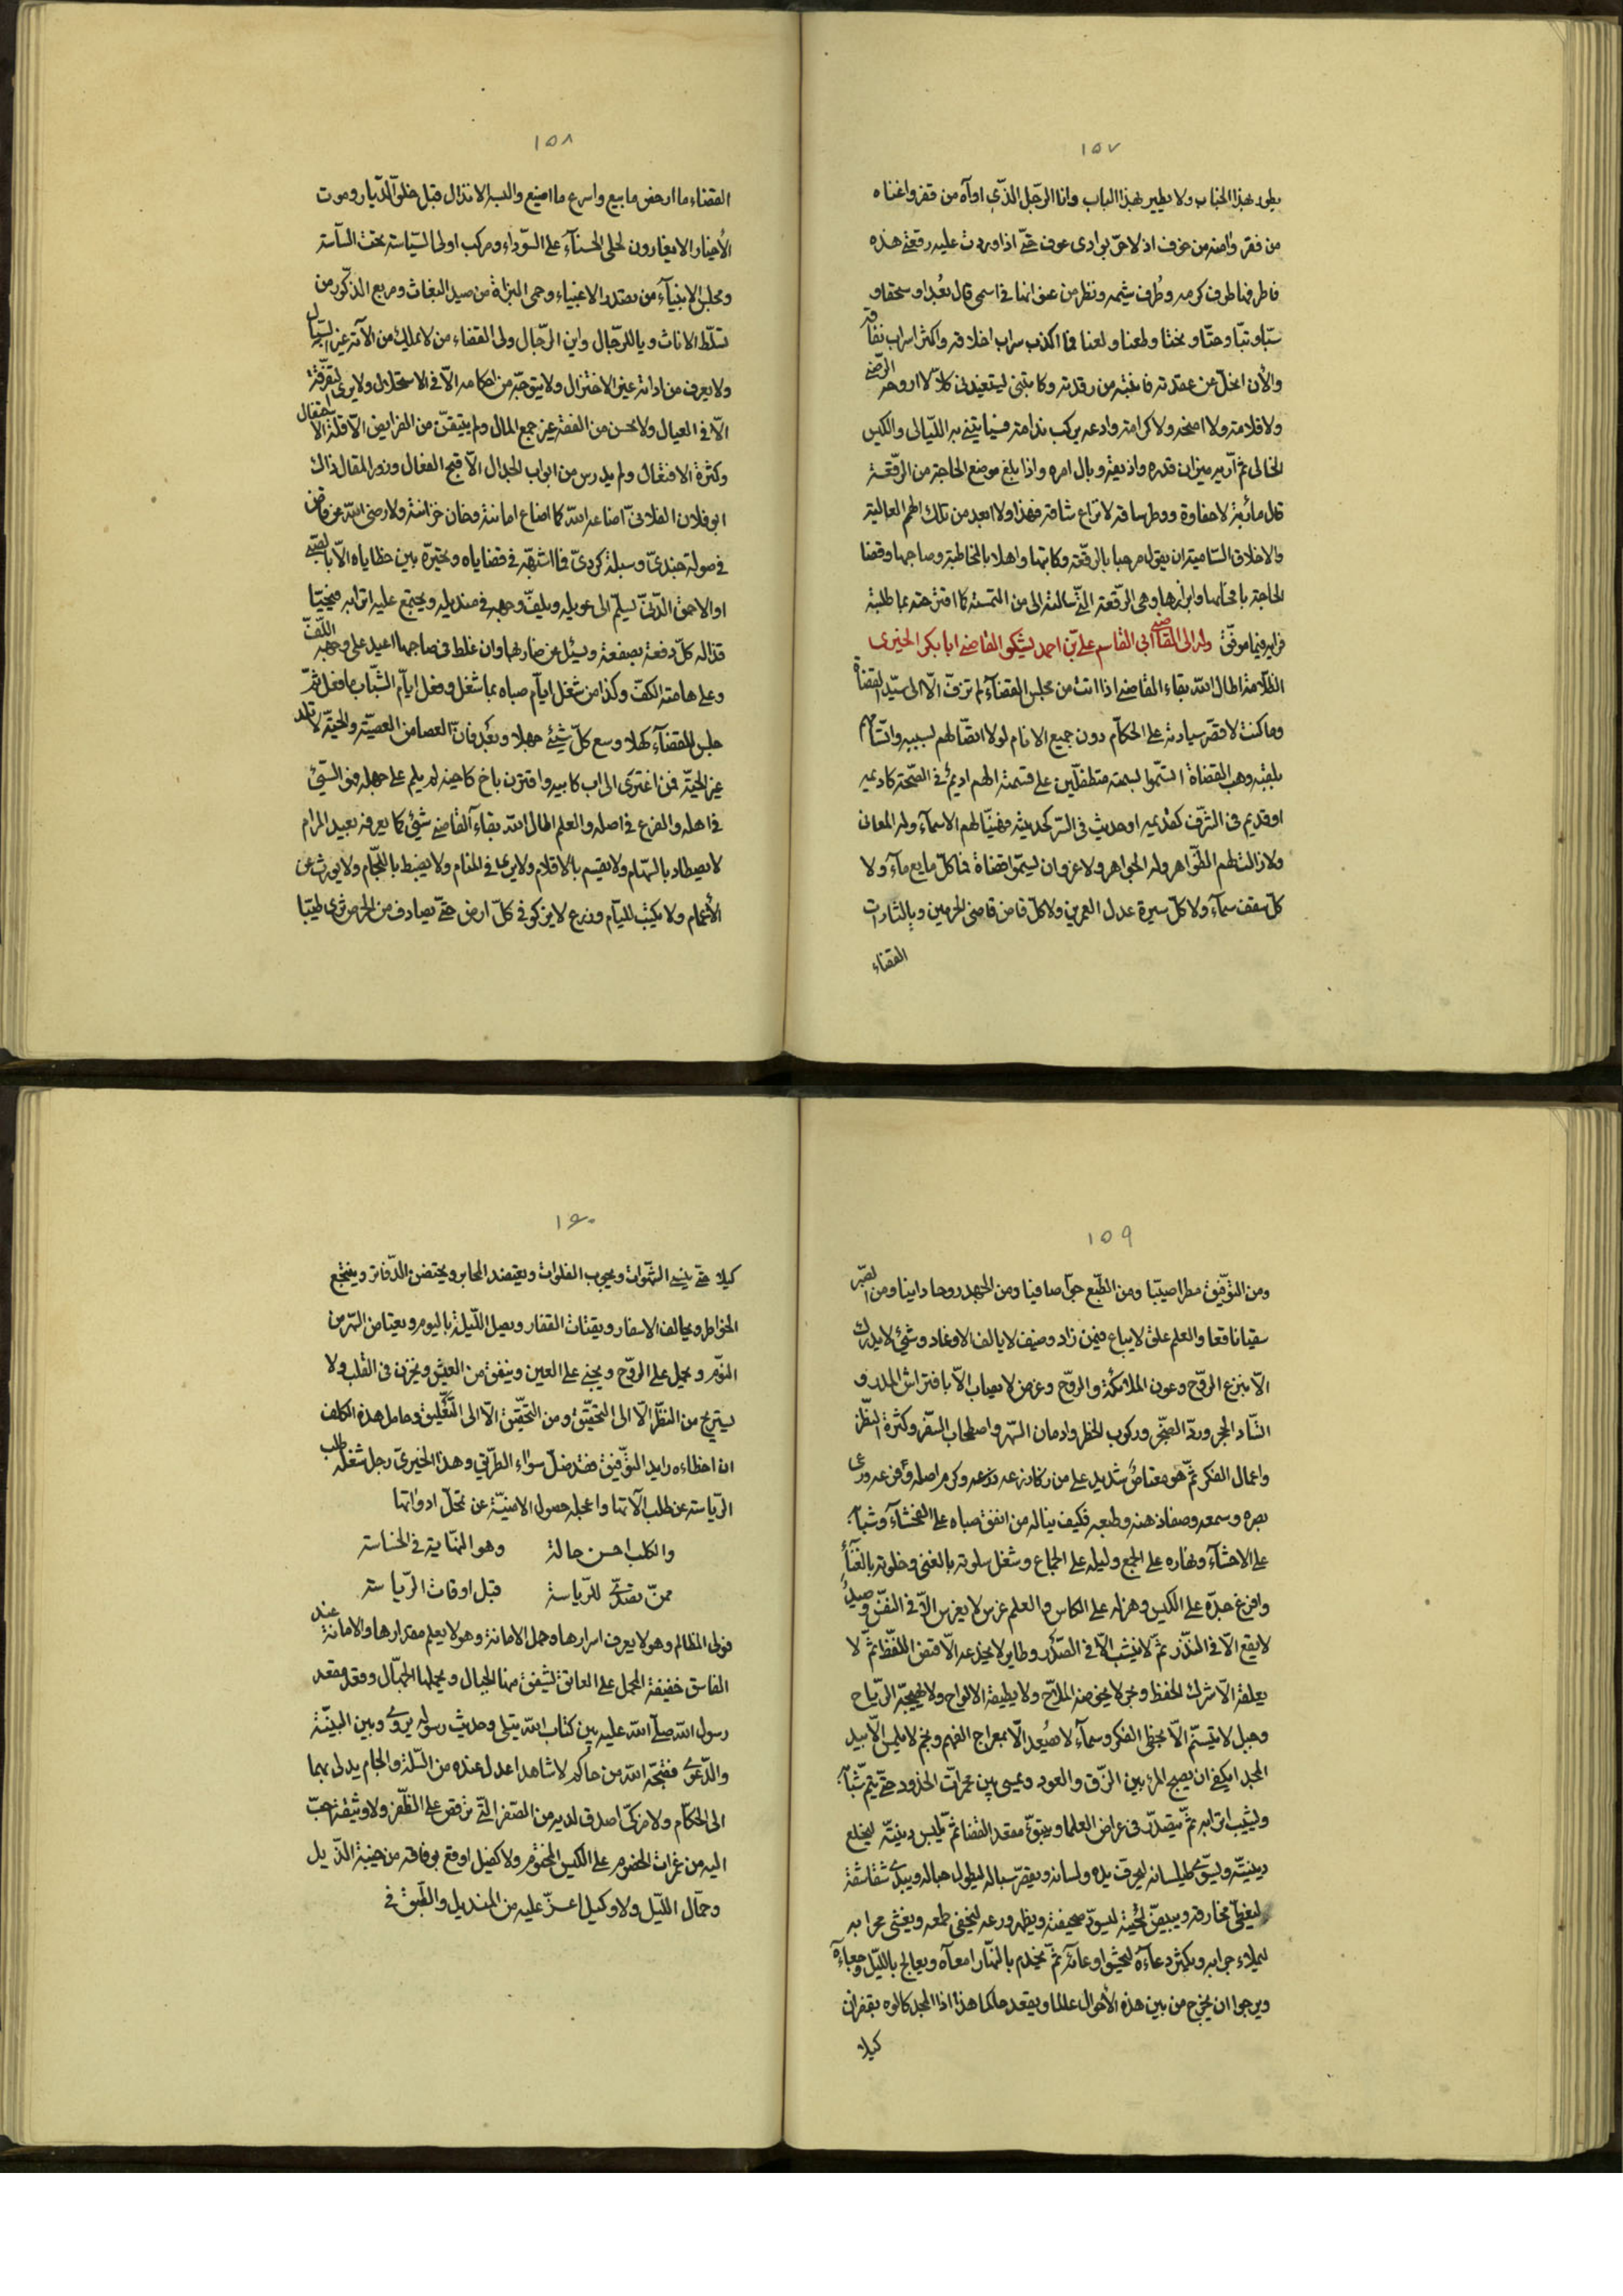 ١٥٧
يطور بهذا الجناب ولا يطير بهذا الباب وانا الرّجل الذّي اواه من قفر واغناه
من فقر وامنه من خوف اذ لا حرّ بوادى عوف حتّى اذا وردت عليه رقعتى هذه
فاطرفها طرف كرمه وظرف شيمه ونظر من عنوانها فى اسمى قال بُعدًا وسحقا و
سبّا وتبّا وحتّا ونحتا وطعنا ولعنا فما اكذب سراب اخلاقه واكثر اسراب نفاقه
والأن انحلّ عن عقدته وانتبه من رقدته وكاتبنى ليستعيدنى كلاّ لا ازوجه الرّضى
ولا قلامة ولا امنحه ولا كرامة وادعه يركب ندامة فسيأتينى به اللّيالى والكيس
الخالى ثم اريه ميزان قدره واذيقه وبال امره واذا بلغ موضع الحاجة من الرّقعة
قال مأربة لا حفاوة ووطر ساقه لا نزاع شاقه فهذا ولا ابعد من تلك الهمم العالية
والاخلاق السّامية ان يقول مرحبا بالرّقعة وكاتبها واهلا بالمخاطبة وصاحبها وقضا
الحاجة بانحائها وابرازها وهى الرّقعة الّتى سالته الى من التمسته كما اقترحته بما طلبته
فرايه فيما موفّق وله الى القاضى ابى القاسم على بّن احمد يشكو القاضى ابا بكر الحيرى
الظلامة اطال الله بقاء القاضى اذا اتت من مجلس القضآء لم ترقّ الّا الى سيّد القضاة
وما كنت لا قصر سيادته على الحكّام دون جميع الانام لولا اتصّالهم بسببه واتسّامهم
بلقبه وهب القضاة اتسّموا بسمته متطفلّين على قسمته الهم اديم فى الصّحة كاديمه
او قديم فى الشّرف كقديمه او حديث فى السّر كحديثه فهنيّا لهم الاسمآء وله المعان
ولا زالت لهم الظّواهر وله الجواهر ولا غرو ان يسمّوا قضاة فما كلّ مايع مآء ولا
كلّ سقف سمآء ولا كلّ سيرة عدل العمرين ولا كلّ قاض قاضى الحرمين ويالثارات
القضاء
١٥٨
القضاء ما ارخص ما بيع واسرع ما اضيع والسبه الانذال قبل خلوّ الدّيار وموت
الأخيار الا يغارون لحلى الحسناء على السّوداء ومركب اولى السّياسة تحت السّاسة
ومجلس الانبيآء من تصدر الاغبياء وحمى البزاة من صيد البغاث ومربع الذكّور من
تسلّط الاناث ويا للرّجال واين الرّجال ولى القضاء من لا يملك من الآته غير السّبال
ولا يعرف من ادواته غير الاختزال ولا يتوجّه من احكامه الّا فى الاستحلال ولا يرى التفرقة
الّا فى العيال ولا يحسن من الفقه غير جمع المال ولم يتيقن من الفرايض الّا قلّة الاحتفال
وكثرة الافتعال ولم يدرس من ابواب الجدال الّا قبح الفعال وزور المقال ذاك
ابو فلان الفلانىّ اضاعه الله كما اضاع امانته وخان خزانته ولا رضى الله عن قاض
فى صولة جندىّ وسبلة كردىّ فما اشبهّه فى قضاياه وتحيّره بين خطاياه الّا بالصّبى
او الاحمق الدّنّى يسلّم الى عويله ويلفّ وجهه فى منديله ويجتمع عليه اترابه فيحيّا
قذاله كلّ دفعة بصفعة ويسئل عن ضاربها وان غلط فى صاحبها اعيد على وجهه اللّفّ
وعلى هامته الكفّ وكذا من شغل ايآم صباه بما شغل وفعل ايآم الشّباب ما فعل ثمّ
جلس للقضآء كهلا وسع كلّ شئ جهلا وبَعُد فانّ العصا من العصيّة والحيّة لا تلد
غير الحيّة فمن اعتزى الى اب كابيه واقترن باخ كاخيه لم يلم على جهله فمن السّقى
فى اهله والفرع فى اصله والعلم اطال الله بقاء القاضى شئ كما يعرفه بعيد المرام
لا يصطاد بالسّهام ولا يقسم بالاقلام ولا يرى فى المنام ولا يضبط باللّجام ولا يورث عن
الأعمام ولا يكتب للّيام وزرع لا يزكو فى كلّ ارض حتّى يصادف من الحرص ثرى طيّبا
١٥٩
ومن التّوفّيق مطرا صيّبا ومن الطّبع جوّا صافيا ومن الجهد روحا دايبا ومن الصّبر
سقيا نافعا والعلم علق لا يباع فيمن زاد وصنف لا يالف الاوغاد وشئ لا يدرك
الّا بنزع الرّوح وعون الملائكة والرّوح وغرض لا يصاب الّا بافتراش المدر و
استّناد الحجر وردّ الضّجر وركوب الخطر وادمان السّهر واصطحاب السّفر وكثرة النّظر
واعمال الفكر ثمّ هو معتاصُ شديد على من زكا زرعه وكرم اصله وفرعه ووعى
بصره وسمعه وصفا ذهنه وطبعه فكيف يناله من انفق صباه على الفحشآء وشبابه
على الاحشآء ونهاره على الجمع وليله على الجماع وشغل سلوته بالغنى وخلوته بالغنآء
وافرغ جدّه على الكيس وهزله على الكاس والعلم غرس لا يغرس الّا فى النّفس وصيد
لا يقع الّا فى النّدر ثمّ لا ينشب الّا فى الصّدر وطاير لا يخدعه الّا قفص اللفّظ ثمّ لا
يعلقه الّا شرك الحفظ وبحر لا يخوضه الملاّح ولا يطيقه الالواح ولا تهيجّه الرّياح
وجبل لا يتسنّم الّا بخطى الفكر وسمآء لا يصعد الّا بمعراج الفهم ونجم لا يلمس الّا بيد
المجد ايكفى ان يصبح المرء بين الزّق والعود ويمسى بين محمرّات الخدود حتّى يتمّ شبابه
ويشيب اترابه ثمّ يتصدّر فى عراض العلماء ويتبوّئ مقعد القضا ثمّ يلبس دينيّته ليخلع
دينيّته ويسوّى طيلسانه ليحرّف يده ولسانه ويقصّر سباله ليطول حباله ويبدى شقاشقه
ليغطّى مخارقه ويبيضّ لحيته ليسوّد صحيفته ويظهر ورعه ليخفى طمعه ويغشى محرابه
ليملاء جرابه ويكثر دعآءه ليحشو اوعائه ثمّ يخدم بالنهّار امعآءه ويعالج باللّيل وجعاءه
ويرجوا ان يخرج من بين هذه الأحوال عالما ويقعد حاكما هذا اذا المجد كالوه بقفزان
كيلا
١٦٠
كيلا حتّى ينسى الشّهوات ويجوب الفلوات ويعتضد المحابر ويحتضن الدّفاتر وينتجع
الخواطر ويحالف الاسفار ويقتات القفار ويصل اللّيلة باليوم ويعتاض السّهر من
النّوم ويحمل على الرّوح ويجنى على العين وينفق من العيش ويخزن فى القلب ولا
يستريح من النظّر الّا الى التّحقيّق ومن التّحقيّق الّا الى التّعليق وحامل هذه الكلف
ان اخطاءه رايد التّوفّيق فقد ضلّ سواء الطّريق وهذا الحيرىّ رجل شغله طلب
الرّياسة عن طلب الآتها واعجله حصول الامنيّة عن تمحلّ ادواتها
والكلب احسن حالة وهو النّهاية فى الخساسة
ممنّ تصدّى للرّياسة قبل اوقات الرّياسة
فولى المظالم وهو لا يعرف اسرارها وحمل الامانة وهو لا يعلم مقدارها والامانة عند
الفاسق خفيفة المحمل على العاتق تشفق منها الجبال ويحملها الجهّال وقعد مقعد
رسول الله صلى الله عليه بين كتاب الله يتلى وحديث رسوله يروى وبين البيّنة
والدّعوى فقبّحه الله من حاكم لا شاهد اعدل عنده من السّلّة والجام يدلى بهما
الى الحكّام ولا مزكّى اصدق لديه من الصّفر الّتى ترقص على الظّفر ولا وثيقة احبّ
اليه من غمزات الخصوم على الكيس المختوم ولا كفيل اوقع بوفاقه من خبيئة الذّيل
وحمّال اللّيل ولا وكيل اعزّ عليه من المنديل والطّبق فى